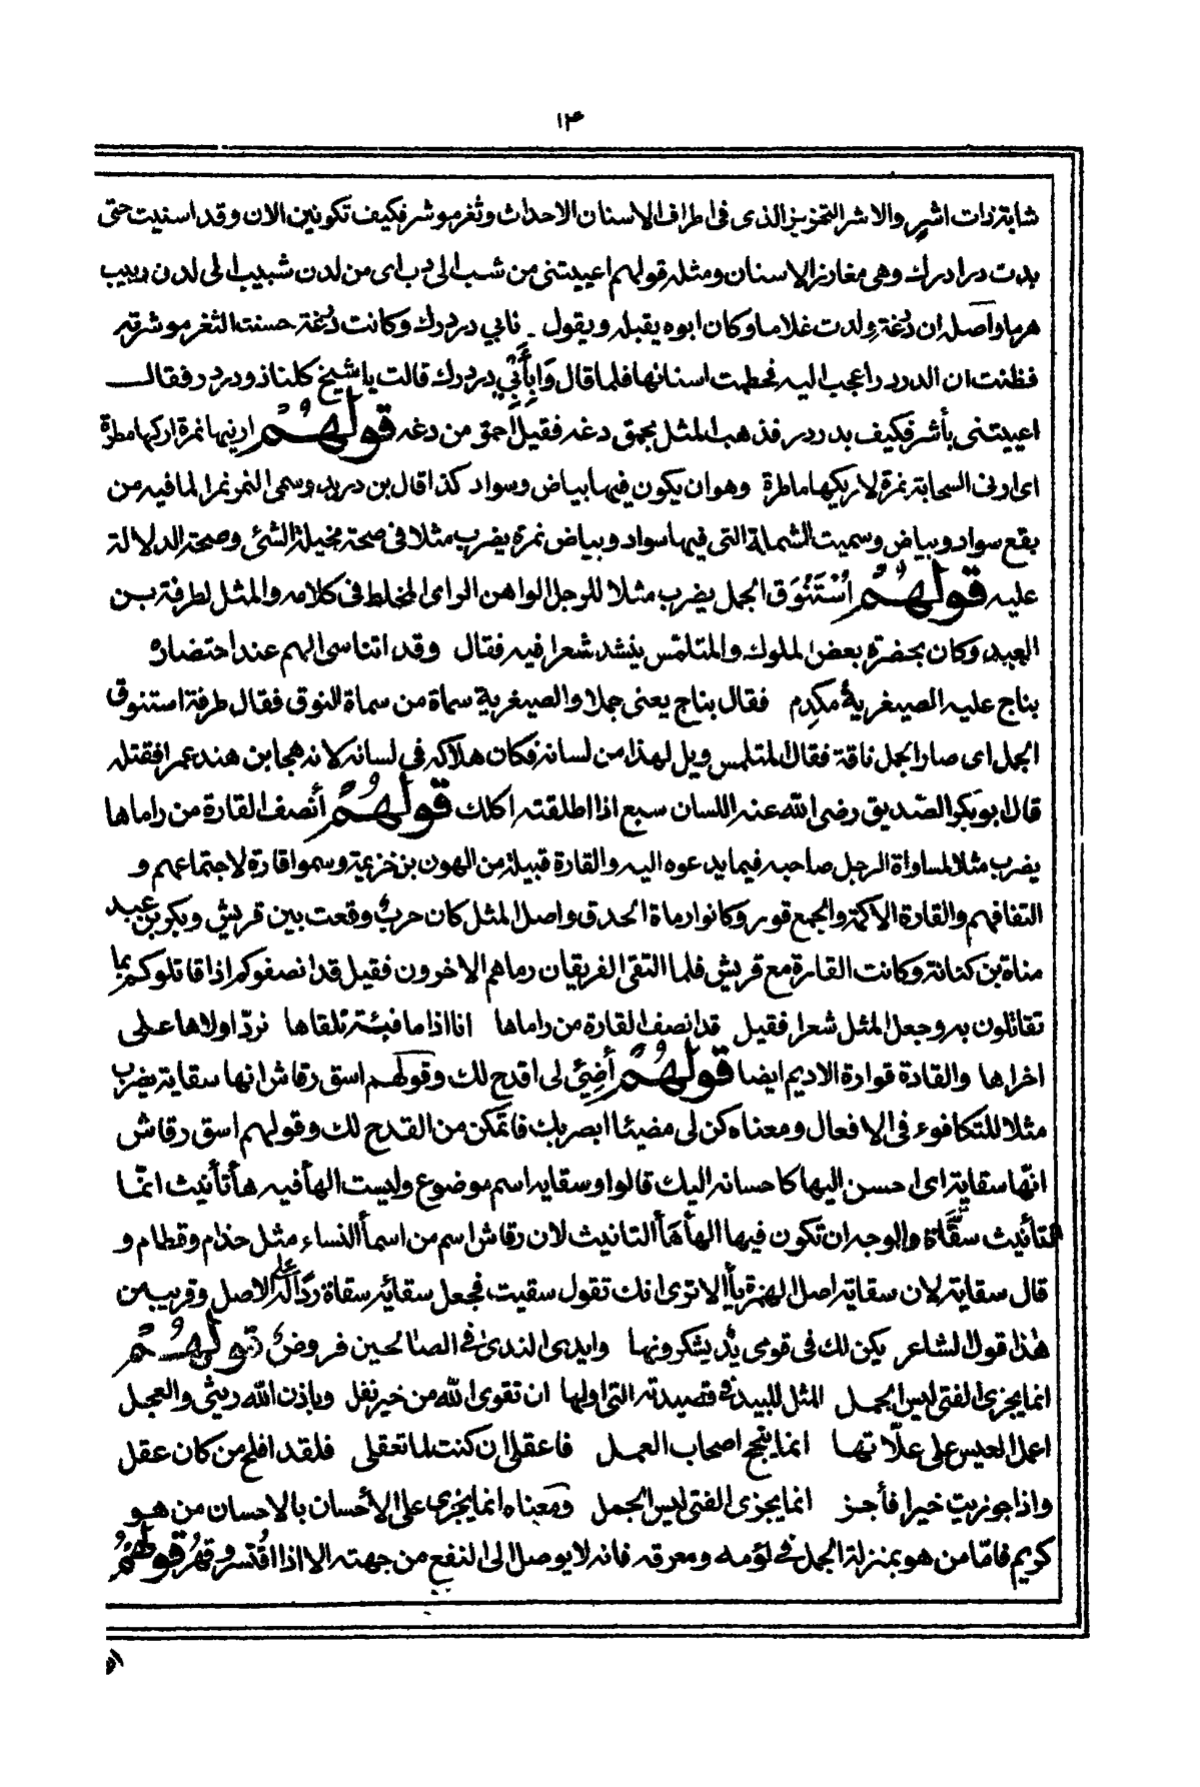 ١٣
شابة ذات اشر والاشر التحزيز الذى فى اطراف الاسنان الاحداث وثغر موشر فكيف تكونين الان وقد اسنيت حتى
بدت درادرك وهى مغارز الاسنان ومثله قولهم اعييتنى من شب الى دب اى من لدن شبيب الى لدن دبيب
هرما واصله ان دغة ولدت غلاما وكان ابوه يقبله ويقول بابي دردرك وكانت دغة حسنة الثغر موشرته
فظنت ان الدردر اعجب اليه فحطمت اسنانها فلما قال وَابِأَبِي دردرك قالت يا شيخ كلنا ذو دردر فقال
اعييتنى بأشر فكيف بدردر فذهب المثل بحمق دغه فقيل احمق من دغه قولهم ارنيها نمرة اركها مطرة
اى ارنى السحابة نمرة لاريكها ماطرة وهو ان يكون فيها بياض وسواد كذا قال بن دريد وسمى النمر نمرا لما فيه من
بقع سواد وبياض وسميت الشملة التى فيها سواد وبياض نمرة يضرب مثلا فى صحة مخيلة الشئ وصحة الدلالة
عليه قولهم اُسْتَنْوَق الجمل يضرب مثلا للرجل الواهن الراى المخلط فى كلامه والمثل لطرفة بن
العبد وكان بحضرة بعض الملوك والمتلمّس ينشد شعرا فيه فقال وقد اتناسى الهم عند احتضاره
بناج عليه الصيعرية مكدم فقال بناج يعنى جملا والصيعرية سماة من سماة النوق فقال طرفة استنوق
الجمل اى صار الجمل ناقة فقال المتلمس ويل لهذا من لسانه فكان هلاكه في لسانه لانه هجا بن هند عمرا فقتله
قال ابو بكر الصّديق رضى الله عنه اللسان سبع اذا اطلقته اكلك قولهم أنصف القارة من راماها
يضرب مثلا لمساواة الرجل صاحبه فيما يدعوه اليه والقارة قبيلة من الهون بن خزيمة وسموا قارة لاجتماعهم و
التفافهم والقارة الاكمة والجمع قور وكانوا رماة الحدق واصل المثل كان حرب وقعت بين قريش وبكر بن عبد
مناة بن كنانة وكانت القارة مع قريش فلما التقى الفريقان رماهم الاخرون فقيل قد انصفوكم اذا قاتلوكم بما
تقاتلون به وجعل المثل شعرا فقيل قد انصف القارة من راماها انا اذا ما فئة تلقاها نردّ اولاها على
اخراها والقادة قوارة الاديم ايضا قولهم أضئي لى اقدح لك وقولهم اسق رقاش انها سقاية يضرب
مثلا للتكافوء فى الافعال ومعناه كن لى مضيئا ابصر بك فاتمكن من القدح لك وقولهم اسق رقاش
انّها سقاية اى احسن اليها كاحسانه اليك قالوا وسقايه اسم موضوع وليست الهأ فيه هأ تأنيث انمّا
التأنيث سقّاة والوجه ان تكون فيها الهأ هَأ التانيث لان رقاش اسم من اسمأ النساء مثل حذام وقطام و
قال سقاية لان سقاية اصل الهمزة يأ الا ترى انك تقول سقيت فجعل سقائه سقاة ردّا له على الاصل وقريب من
هذا قول الشاعر يكن لك فى قومى يدٌ يشكرونها وايدى الندى فى الصالحين فروض قولهم
انما يجزى الفتى ليس الجمل المثل للبيد فى قصيدته التى اولها ان تقوى الله من خير نفل وباذن الله ريثى والعجل
اعمل العيس على علاّتها انما ينجح اصحاب العمل فاعقلى ان كنت لما تعقلى فلقد افلح من كان عقل
واذا جوزيت خيرا فأجز انما يجزى الفتى ليس الجمل ومعناه انما يجزى على الأحسان بالاحسان من هو
كريم فامّا من هو بمنزلة الجمل فى لؤمه ومعرقه فانه لا يوصل الى النفع من جهته الا اذا اقتسر وقهر قولهم